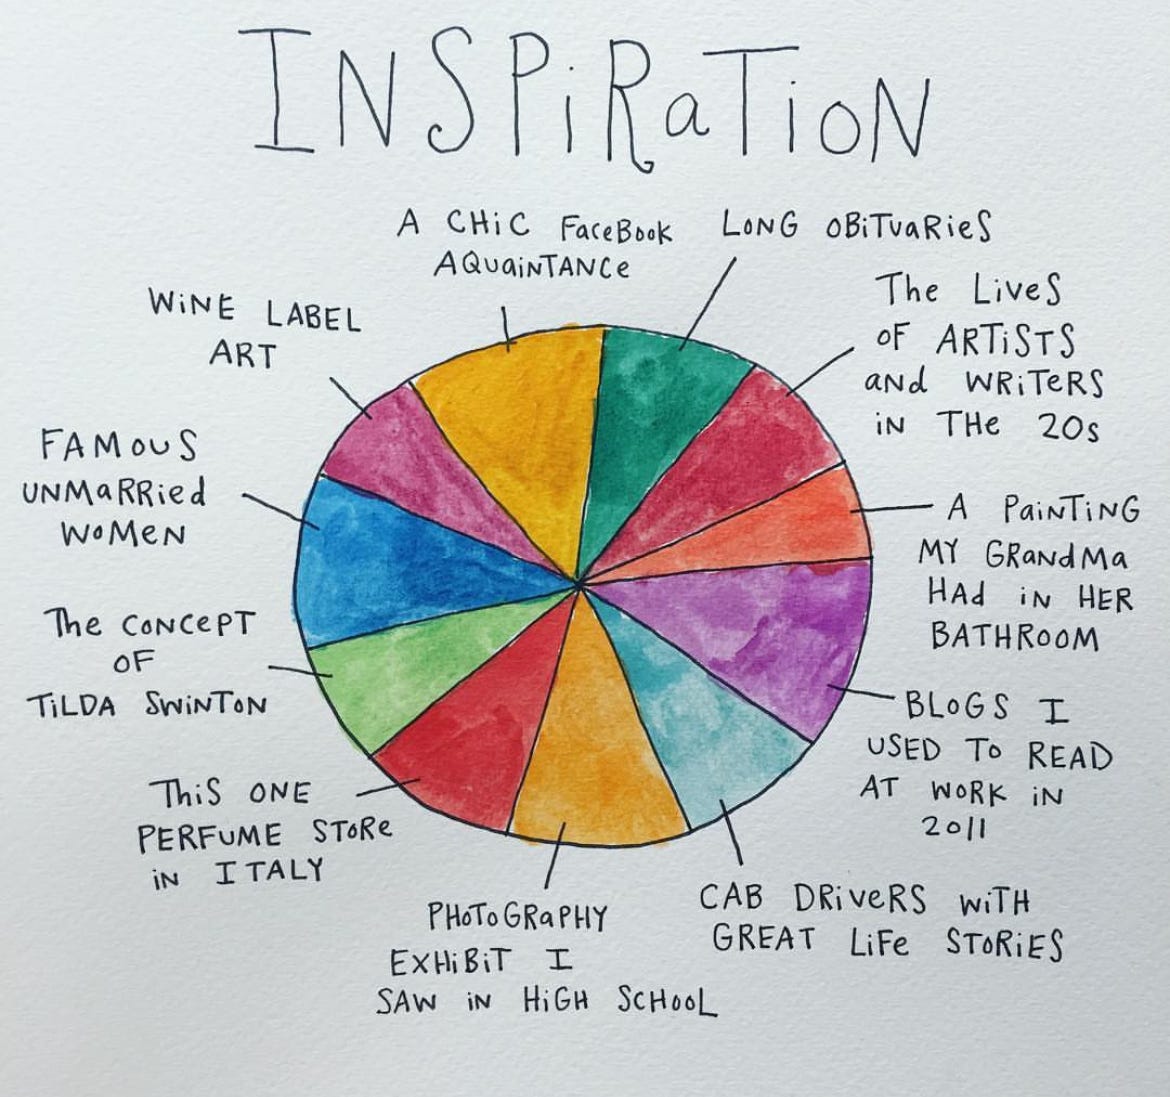 INSPiRaTioN
A CHiC FaceBook
AQUaiNTANCe
LONG OBiTuaRieS
The LiveS
oF ARTiSTS
and WRiTeRS
iN THe 20s
A PaiNTiNG
MY GRandMa
HAd iN HER
BATHROOM
BLoGS I
USED To READ
AT WoRK iN
2011
CAB DRiveRS WiTH
GREAT LiFe SToRiES
PHoToGRaPHY
EXHiBiT I
SAW iN HiGH SCHooL
ThiS ONE
PERFUME SToRe
iN ITALY
The CoNCePT
OF
TiLDA SWiNToN
FAMouS
UNMaRRied
WoMEN
WiNE LABEL
ART